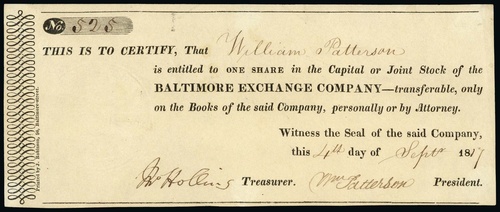 No. 525
THIS IS TO CERTIFY, That William Patterson
is entitled to ONE SHARE in the Capital or Joint Stock of the
BALTIMORE EXCHANGE COMPANY—transferable, only
on the Books of the said Company, personally or by Attorney.
Witness the Seal of the said Company,
this 4th day of Septr 1817
Jn Hollins Treasurer. Wm Patterson President.
Printed by J. Robinson, 96, Baltimore-street.